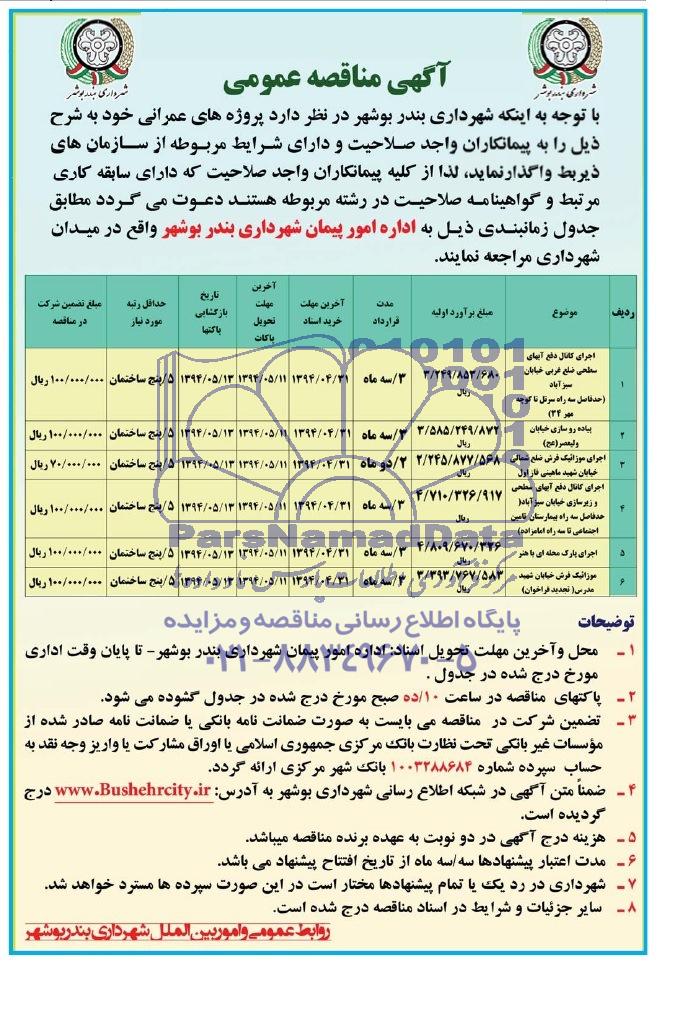 شهرداری بندر بوشهر
شهرداری بندر بوشهر
آگهی مناقصه عمومی
با توجه به اینکه شهرداری بندر بوشهر در نظر دارد پروژه های عمرانی خود به شرح
ذیل را به پیمانکاران واجد صلاحیت و دارای شرایط مربوطه از سازمان های
ذیربط واگذارنماید، لذا از کلیه پیمانکاران واجد صلاحیت که دارای سابقه کاری
مرتبط و گواهینامه صلاحیت در رشته مربوطه هستند دعوت می گردد مطابق
جدول زمانبندی ذیل به اداره امور پیمان شهرداری بندر بوشهر واقع در میدان
شهرداری مراجعه نمایند.
ردیف | موضوع | مبلغ برآورد اولیه | مدت قرارداد | آخرین مهلت خرید اسناد | آخرین مهلت تحویل پاکات | تاریخ بازگشایی پاکتها | حداقل رتبه مورد نیاز | مبلغ تضمین شرکت در مناقصه
۱ | اجرای کانال دفع آبهای سطحی ضلع غربی خیابان سبزآباد (حدفاصل سه راه سرتل تا کوچه مهر ۳۴) | ۳/۲۴۹/۸۵۲/۶۸۰ ریال | ۳/سه ماه | ۱۳۹۴/۰۴/۳۱ | ۱۳۹۴/۰۵/۱۱ | ۱۳۹۴/۰۵/۱۳ | ۵/پنج ساختمان | ۱۰۰/۰۰۰/۰۰۰ ریال
۲ | پیاده رو سازی خیابان ولیعصر(عج) | ۳/۵۸۵/۲۴۹/۸۷۲ ریال | ۳/سه ماه | ۱۳۹۴/۰۴/۳۱ | ۱۳۹۴/۰۵/۱۱ | ۱۳۹۴/۰۵/۱۳ | ۵/پنج ساختمان | ۱۰۰/۰۰۰/۰۰۰ ریال
۳ | اجرای موزائیک فرش ضلع شمالی خیابان شهید ماهینی فاز اول | ۲/۲۴۵/۸۷۷/۵۶۸ ریال | ۲/دو ماه | ۱۳۹۴/۰۴/۳۱ | ۱۳۹۴/۰۵/۱۱ | ۱۳۹۴/۰۵/۱۳ | ۵/پنج ساختمان | ۷۰/۰۰۰/۰۰۰ ریال
۴ | اجرای کانال دفع آبهای سطحی و زیرسازی خیابان سبزآباد( حدفاصل سه راه بیمارستان تامین اجتماعی تا سه راه امامزاده) | ۴/۷۱۰/۳۲۶/۹۱۷ ریال | ۳/سه ماه | ۱۳۹۴/۰۴/۳۱ | ۱۳۹۴/۰۵/۱۱ | ۱۳۹۴/۰۵/۱۳ | ۵/پنج ساختمان | ۱۰۰/۰۰۰/۰۰۰ ریال
۵ | اجرای پارک محله ای باهنر | ۴/۸۰۹/۶۷۰/۳۲۶ ریال | ۳/سه ماه | ۱۳۹۴/۰۴/۳۱ | ۱۳۹۴/۰۵/۱۱ | ۱۳۹۴/۰۵/۱۳ | ۵/پنج ساختمان | ۱۰۰/۰۰۰/۰۰۰ ریال
۶ | موزائیک فرش خیابان شهید مدرس( تجدید فراخوان) | ۳/۳۹۳/۷۶۷/۵۸۳ ریال | ۳/سه ماه | ۱۳۹۴/۰۴/۳۱ | ۱۳۹۴/۰۵/۱۱ | ۱۳۹۴/۰۵/۱۳ | ۵/پنج ساختمان | ۱۰۰/۰۰۰/۰۰۰ ریال
ParsNamadData
پایگاه اطلاع رسانی مناقصه و مزایده
۰۲۱-۸۸۳۴۹۶۷۰-۵
توضیحات
۱ ـ محل وآخرین مهلت تحویل اسناد: اداره امور پیمان شهرداری بندر بوشهر- تا پایان وقت اداری
مورخ درج شده در جدول .
۲ ـ پاکتهای مناقصه در ساعت ۱۰/ده صبح مورخ درج شده در جدول گشوده می شود.
۳ ـ تضمین شرکت در مناقصه می بایست به صورت ضمانت نامه بانکی یا ضمانت نامه صادر شده از
مؤسسات غیر بانکی تحت نظارت بانک مرکزی جمهوری اسلامی یا اوراق مشارکت یا واریز وجه نقد به
حساب سپرده شماره ۱۰۰۳۲۸۸۶۸۴ بانک شهر مرکزی ارائه گردد.
۴ ـ ضمناً متن آگهی در شبکه اطلاع رسانی شهرداری بوشهر به آدرس: www.Bushehrcity.ir درج
گردیده است.
۵ ـ هزینه درج آگهی در دو نوبت به عهده برنده مناقصه میباشد.
۶ ـ مدت اعتبار پیشنهادها سه/سه ماه از تاریخ افتتاح پیشنهاد می باشد.
۷ ـ شهرداری در رد یک یا تمام پیشنهادها مختار است در این صورت سپرده ها مسترد خواهد شد.
۸ ـ سایر جزئیات و شرایط در اسناد مناقصه درج شده است.
روابط عمومی وامور بین الملل شهرداری بندر بوشهر